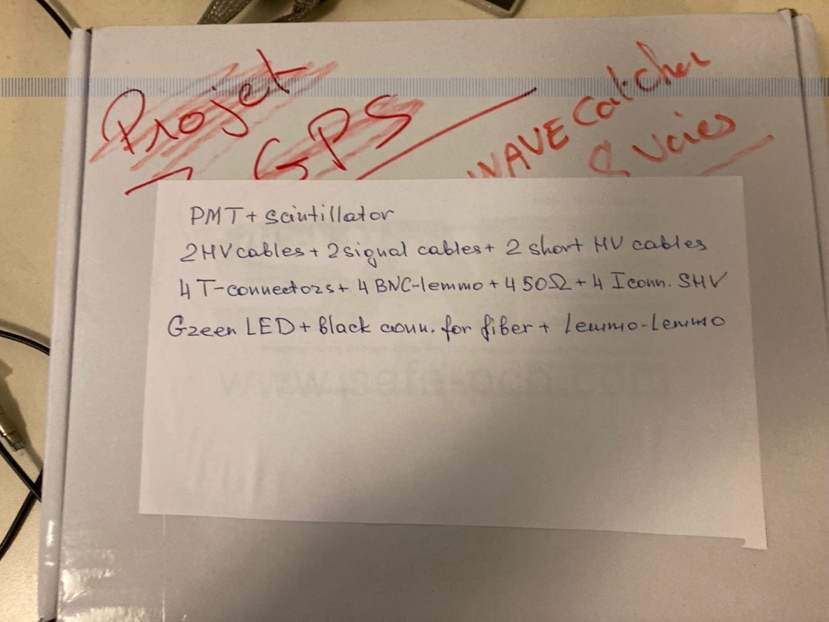 Projet
GPS
WAVECatcher
8 Voies
PMT + Scintillator
2 HV cables + 2 signal cables + 2 short HV cables
4 T-connectors + 4 BNC-lemmo + 4 50Ω + 4 I conn. SHV
Green LED + Black conn. for fiber + Lemmo-Lemmo